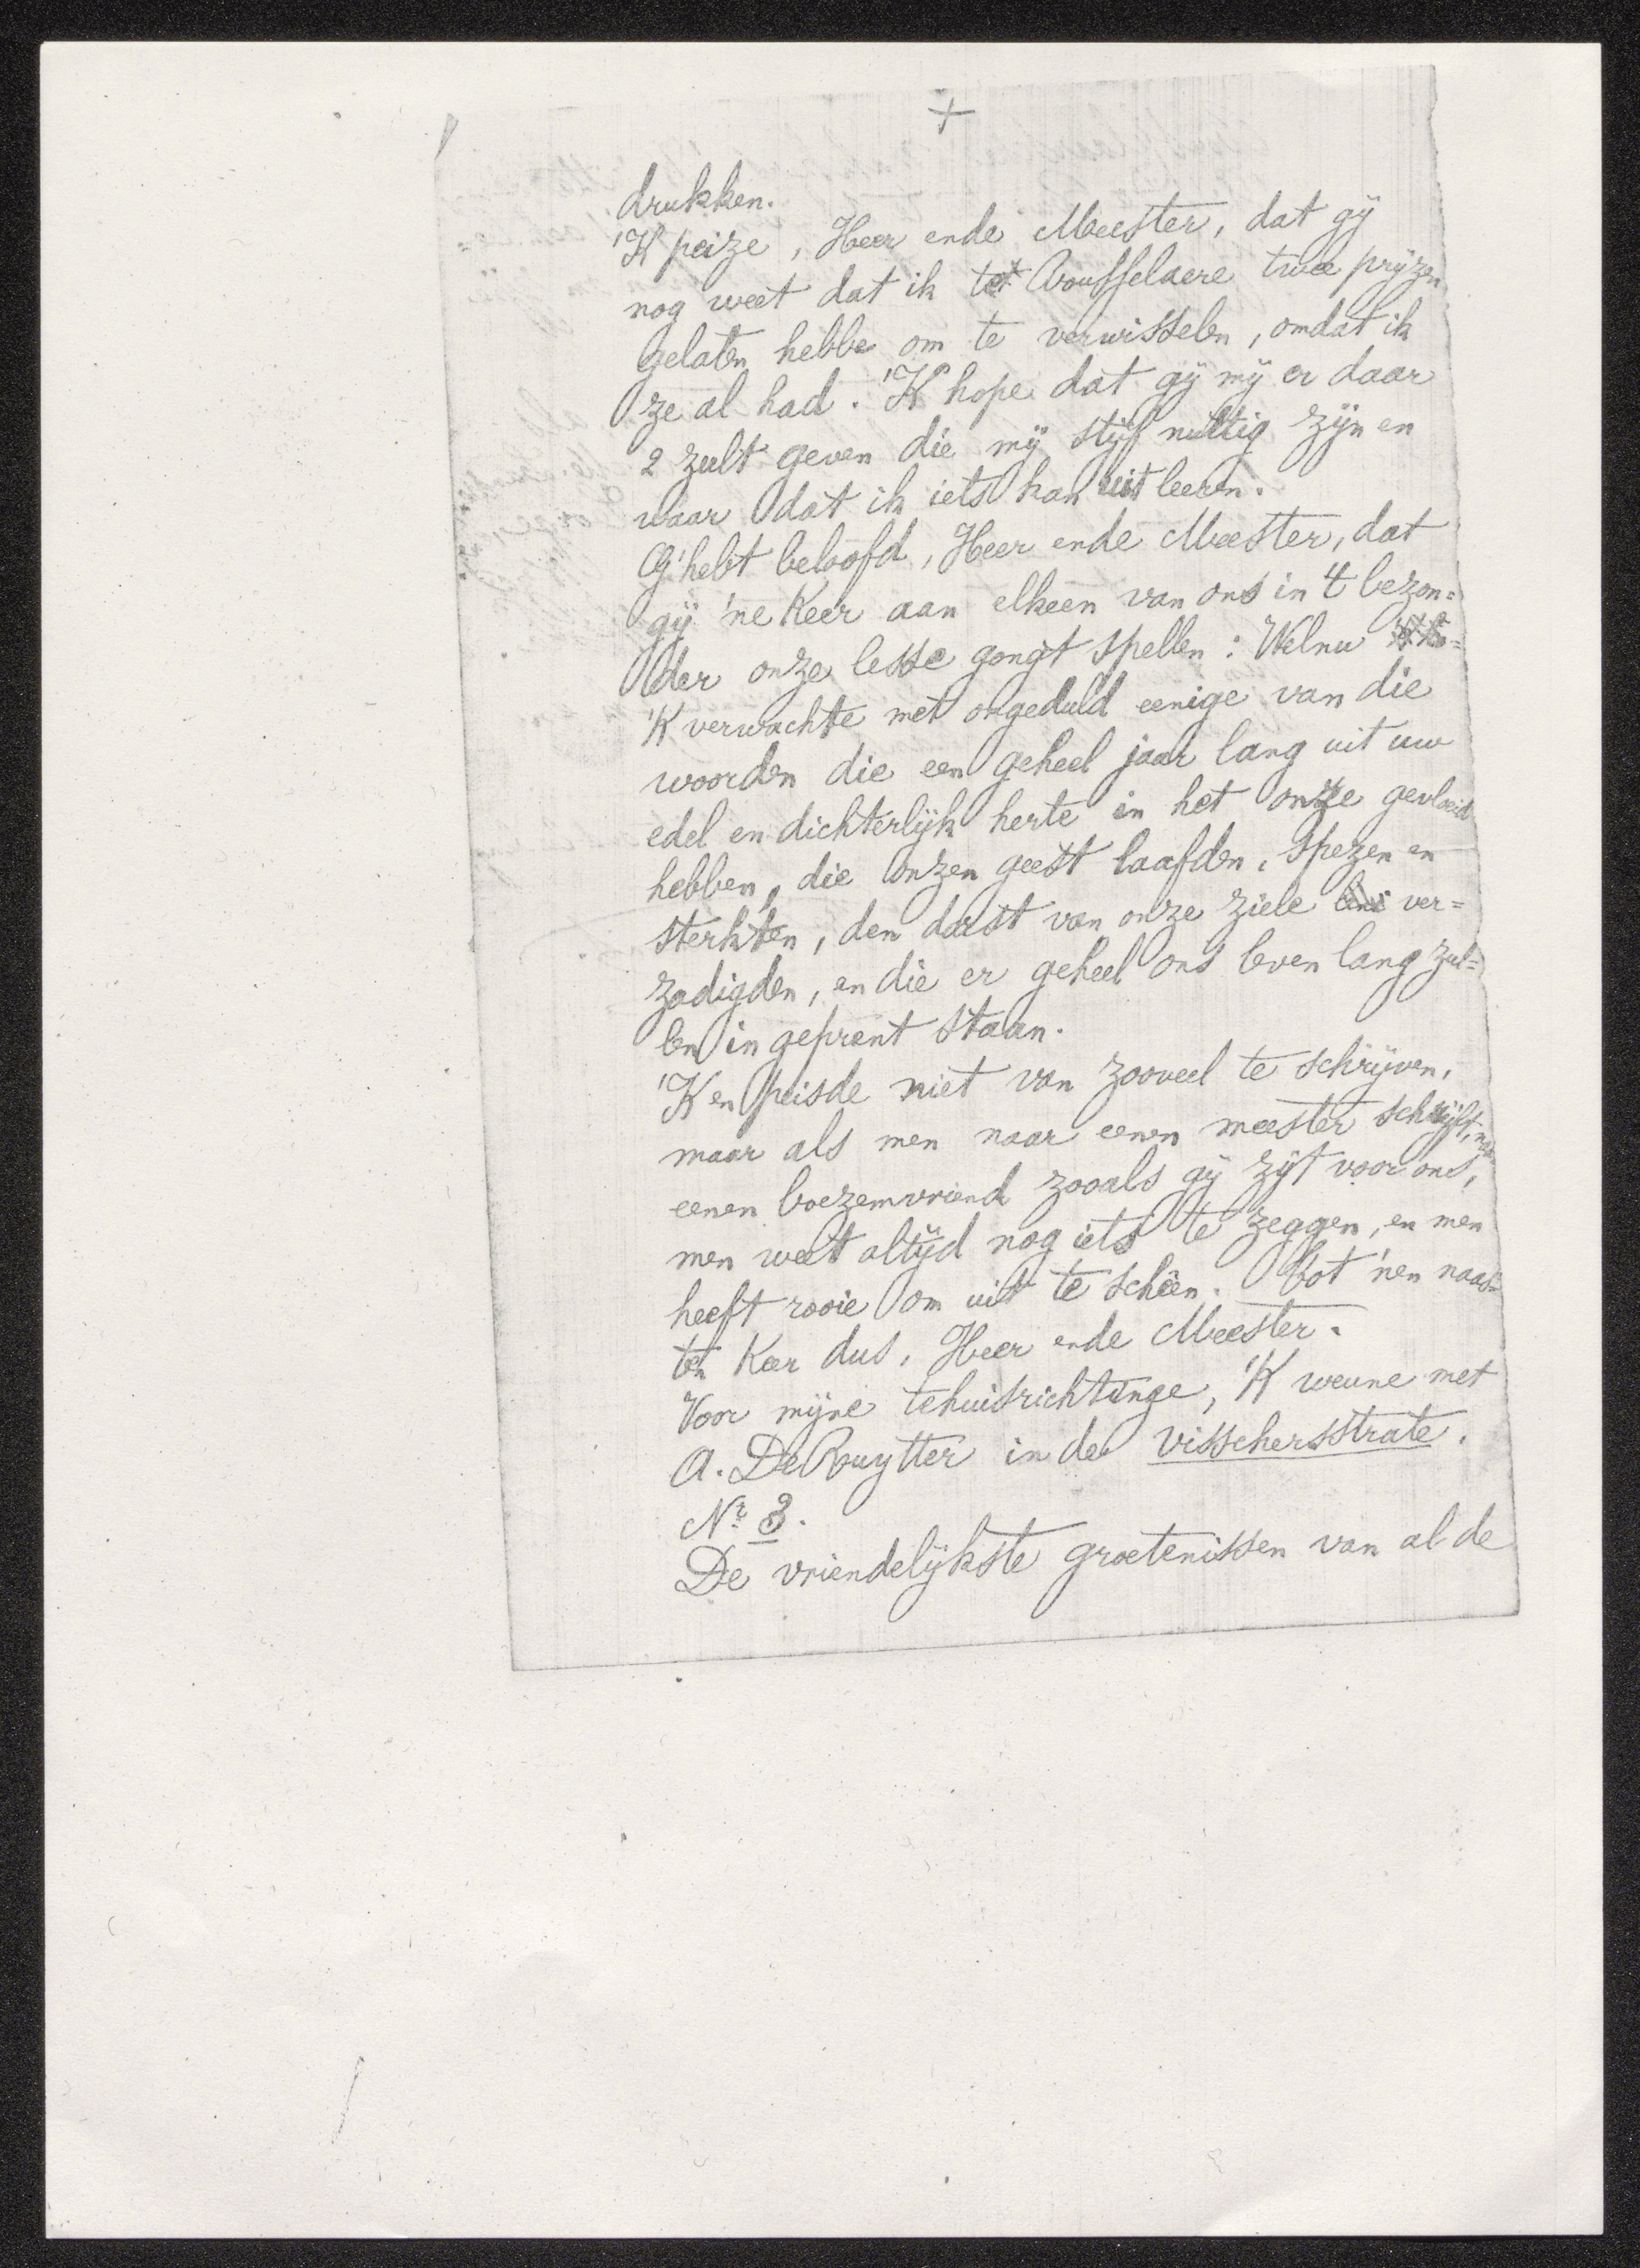 +
drukken.
'K peize, Heer ende Meester, dat gij
nog weet dat ik tot Rousselaere twee prijzen
gelaten hebbe om te verwisselen, omdat ik
ze al had. 'K hope dat gij mij er daar
2 zult geven die mij stijf nuttig zijn en
waar dat ik iets kan uit leeren.
G'hebt beloofd, Heer ende Meester, dat
gij 'ne Keer aan elkeen van ons in 't bezon=
der onze lesse gongt spellen: Welnu
'K verwachte met ongeduld eenige van die
woorden die een geheel jaar lang uit uw
edel en dichterlijk herte in het onze gevloeid
hebben, die onzen geest laafden, spezen en
sterkten, den dorst van onze ziele ver=
zadigden, en die er geheel ons leven lang zul=
len in geprent staan.
'K en peisde niet van zooveel te schrijven,
maar als men naar eenen meester schrijft, naar
eenen boezemvriend zooals gij zijt voor ons,
men weet altijd nog iets te zeggen, en men
heeft rooie om uit te schêen. Tot 'nen naas=
ten Keer dus, Heer ende Meester.
Voor mijne tehuisrichtinge, 'K weune met
A. DeRuytter in de visschersstrate.
Nr 3.
De vriendelijkste groetenissen van al de